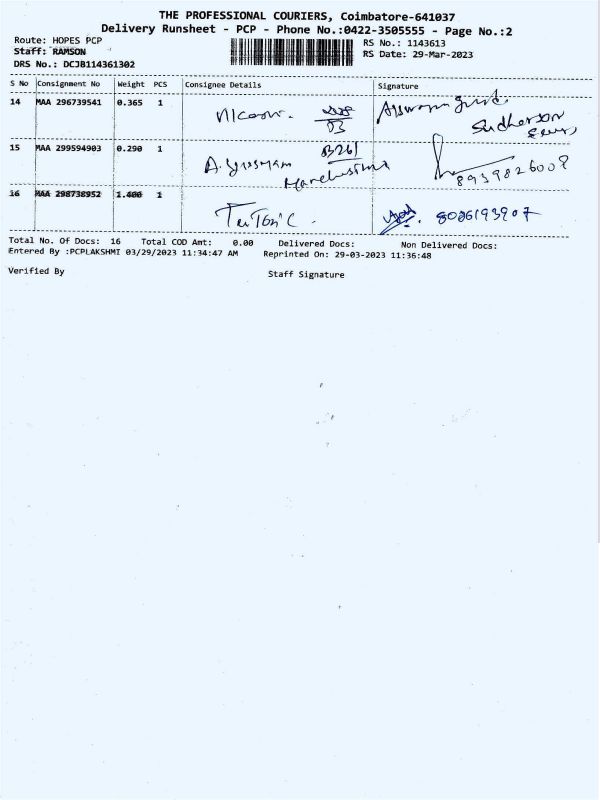 THE PROFESSIONAL COURIERS, Coimbatore-641037
Delivery Runsheet - PCP - Phone No.:0422-3505555 - Page No.:2
Route: HOPES PCP
RS No.: 1143613
Staff: RAMSON
RS Date: 29-Mar-2023
DRS No.: DCJB114361302
S No Consignment No Weight PCS Consignee Details Signature
14 MAA 296739541 0.365 1
15 MAA 299594903 0.290 1 B261
8939826008
16 MAA 298738952 1.400 1
8086193907
Total No. Of Docs: 16 Total COD Amt: 0.00 Delivered Docs: Non Delivered Docs:
Entered By :PCPLAKSHMI 03/29/2023 11:34:47 AM Reprinted On: 29-03-2023 11:36:48
Verified By Staff Signature